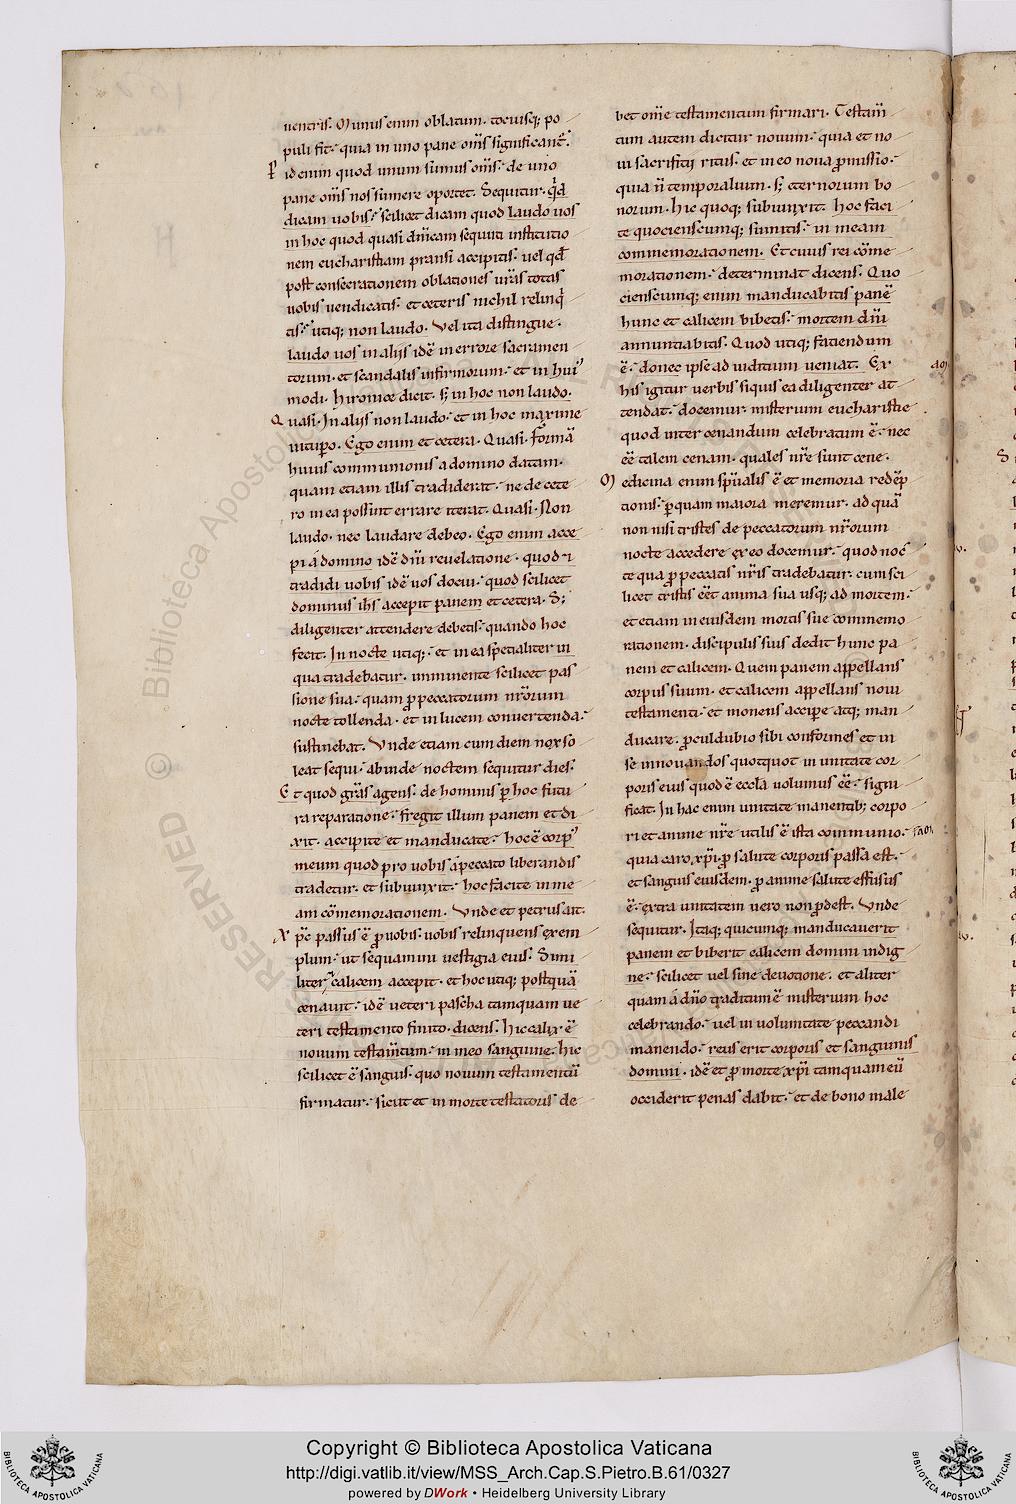 uentris. Munus enim oblatum. tociusq; po
puli fit. quia in uno pane om̅s significant̅.
id enim quod unum sumus om̅s. de uno
pane om̅s nos sumere oportet. Sequitur. qd̅
dicam uobis. scilicet dicam quod laudo uos
in hoc quod quasi dn̅icam sequuti institutio
nem eucharistiam pransi accipitis. uel qd̅
post consecrationem oblationes ur̅as totas
uobis uendicatis. et ceteris nichil relinq̅
tis. utiq; non laudo. Vel ita distingue.
laudo uos in alijs idē in errore sacramen
torum. et scandalis infirmorum. et in hui'
modi. hironice dicit. s; in hoc non laudo.
Quasi. In alijs non laudo. et in hoc maxime
uitup̲o. Ego enim et cetera. Quasi. Formā
huius communionis a domino datam.
quam etiam illis tradiderat. ne de cete
ro in ea possint errare iterat. Quasi. Non
laudo. nec laudare debeo. Ego enim acce
pi a domino idē dn̅i reuelatione. quod et
tradidi uobis idē uos docui. quod scilicet
dominus ih̅s accepit panem et cetera. S;
diligenter attendere debetis. quando hoc
fecit. In nocte utiq;. et in ea specialiter in
qua tradebatur. imminente scilicet pas
sione sua. quam p̲ peccatorum nr̅orum
nocte tollenda. et in lucem conuertenda.
sustinebat. Vnde etiam cum diem nox so
leat sequi. ab inde noctem sequitur dies.
Et quod gr̅as agens. de hominis p̲ hoc futu
ra reparatione. fregit illum panem et di
xit. accipite et manducate. hoc ē corp'
meum quod pro uobis a peccato liberandis
tradetur. et subiunxit. hoc facite in me
am cōmemorationem. Vnde et petrus ait.
Xp̅c passus ē p̲ uobis. uobis relinquens exem
plum. ut sequamini uestigia eius. Simi
liter calicem accepit. et hoc utiq; postquā
cenauit. idē ueteri pascha tamquam ue
teri testamento finito. dicens. hic calix ē
nouum testam̅tum. in meo sanguine. hic
scilicet ē sanguis. quo nouum testamentū
firmatur. sicut et in morte testatoris de
bet om̅e testamentum firmari. Testam̅
tum autem dicitur nouum. quia et no
ui sacrifitij ritus. et in eo noua p̲missio.
quia n̅ temporalium. s; eternorum bo
norum. hic quoq; subiunxit. hoc faci
te quociensc̅umq; sumitis. in meam
commemorationem. Et cuius rei cōme
morationem. determinat dicens. Quo
ciensc̅umq; enim manducabitis panē
hunc et calicem bibetis. mortem dn̅i
annuntiabitis. Quod utiq; faciendum
ē. donec ipse ad iuditium ueniat. Ex
his igitur uerbis siquis ea diligenter at
tendat. docemur misterium eucharistie
quod inter cenandum celebratum ē. nec
eē talem cenam. quales nr̅e sunt cene.
Medicina enim sp̅ualis ē et memoria redēp
tionis. p̲ quam maiora meremur. ad quā
non nisi tristes de peccatorum nr̅orum
nocte accedere ex eo docemur. quod noc̅
te qua p̲ peccatis nr̅is tradebatur. cum sci
licet tristis eēt anima sua usq; ad mortem.
et etiam in eiusdem mortis sue commemo
rationem. discipulis suis dedit hunc pa
nem et calicem. Quem panem appellans
corpus suum. et calicem appellans noui
testamenti. et monens accipere atq; man
ducare. p̲culdubio sibi conformes et in
se innouandos quotquot in unitate cor
poris eius quod ē eccl̅a uolumus eē. signi
ficat. In hac enim unitate manentib; corpo
ri et anime nr̅e utilis ē ista communio.
quia caro xp̅i. p̲ salute corporis passa est.
et sanguis eiusdem. p̲ anime salute effusus
ē. extra unitatem uero non p̲dest. Vnde
sequitur. Itaq; quicumq; manducauerit
panem et biberit calicem domini indig
ne. scilicet uel sine deuotione. et aliter
quam a dn̅o traditum ē misterum hoc
celebrando. uel in uoluntate peccandi
manendo. reus erit corporis et sanguinis
domini. idē et p̲ morte xp̅i tamquam eū
occiderit penas dabit. et de bono male
Copyright © Biblioteca Apostolica Vaticana
http://digi.vatlib.it/view/MSS_Arch.Cap.S.Pietro.B.61/0327
powered by DWork • Heidelberg University Library